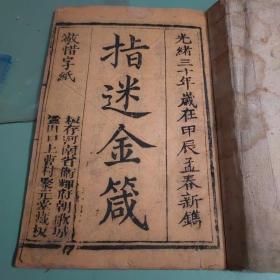 光緒三十年歲在甲辰孟春新鐫
指迷金箴
敬惜字紙
板存河南省衛輝府朝歌城
山口上曹村聚元堂藏板